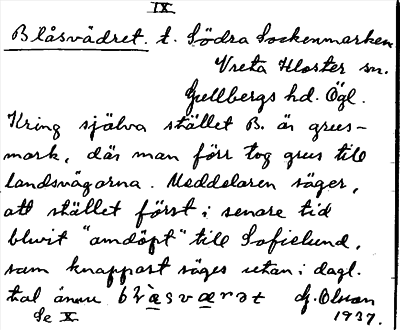 IX
Blåsvädret. t. Södra Sockenmarken
Vreta Kloster sn.
Gullbergs hd. Ögl.
Kring själva stället B. är grus-
mark, där man förr tog grus till
landsvägarna. Meddelaren säger,
att stället först i senare tid
blivit "omdöpt" till Sofielund,
som knappast säges utan i dagl.
tal ännu
G. Olson
Se X
1937.